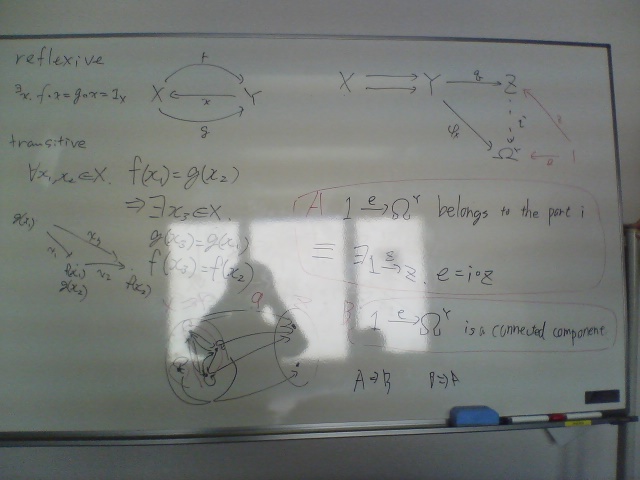 reflexive
∃x. f∘x = g∘x = 1_Y
f
X ← x Y
g
transitive
∀x₁, x₂ ∈ X. f(x₁) = g(x₂)
⇒ ∃x₃ ∈ X.
g(x₃) = g(x₁)
f(x₃) = f(x₂)
g(x₁)
x₃
x₁
x₂
f(x₁)
g(x₂)
f(x₂)
q
X ⇉ Y → Z
i
Ω^Y
1
A 1 →e Ω^Y belongs to the part i
≡ ∃ 1 →z Z. e = i∘z
B 1 →e Ω^Y is a connected component
A ⇒ B B ⇒ A
q